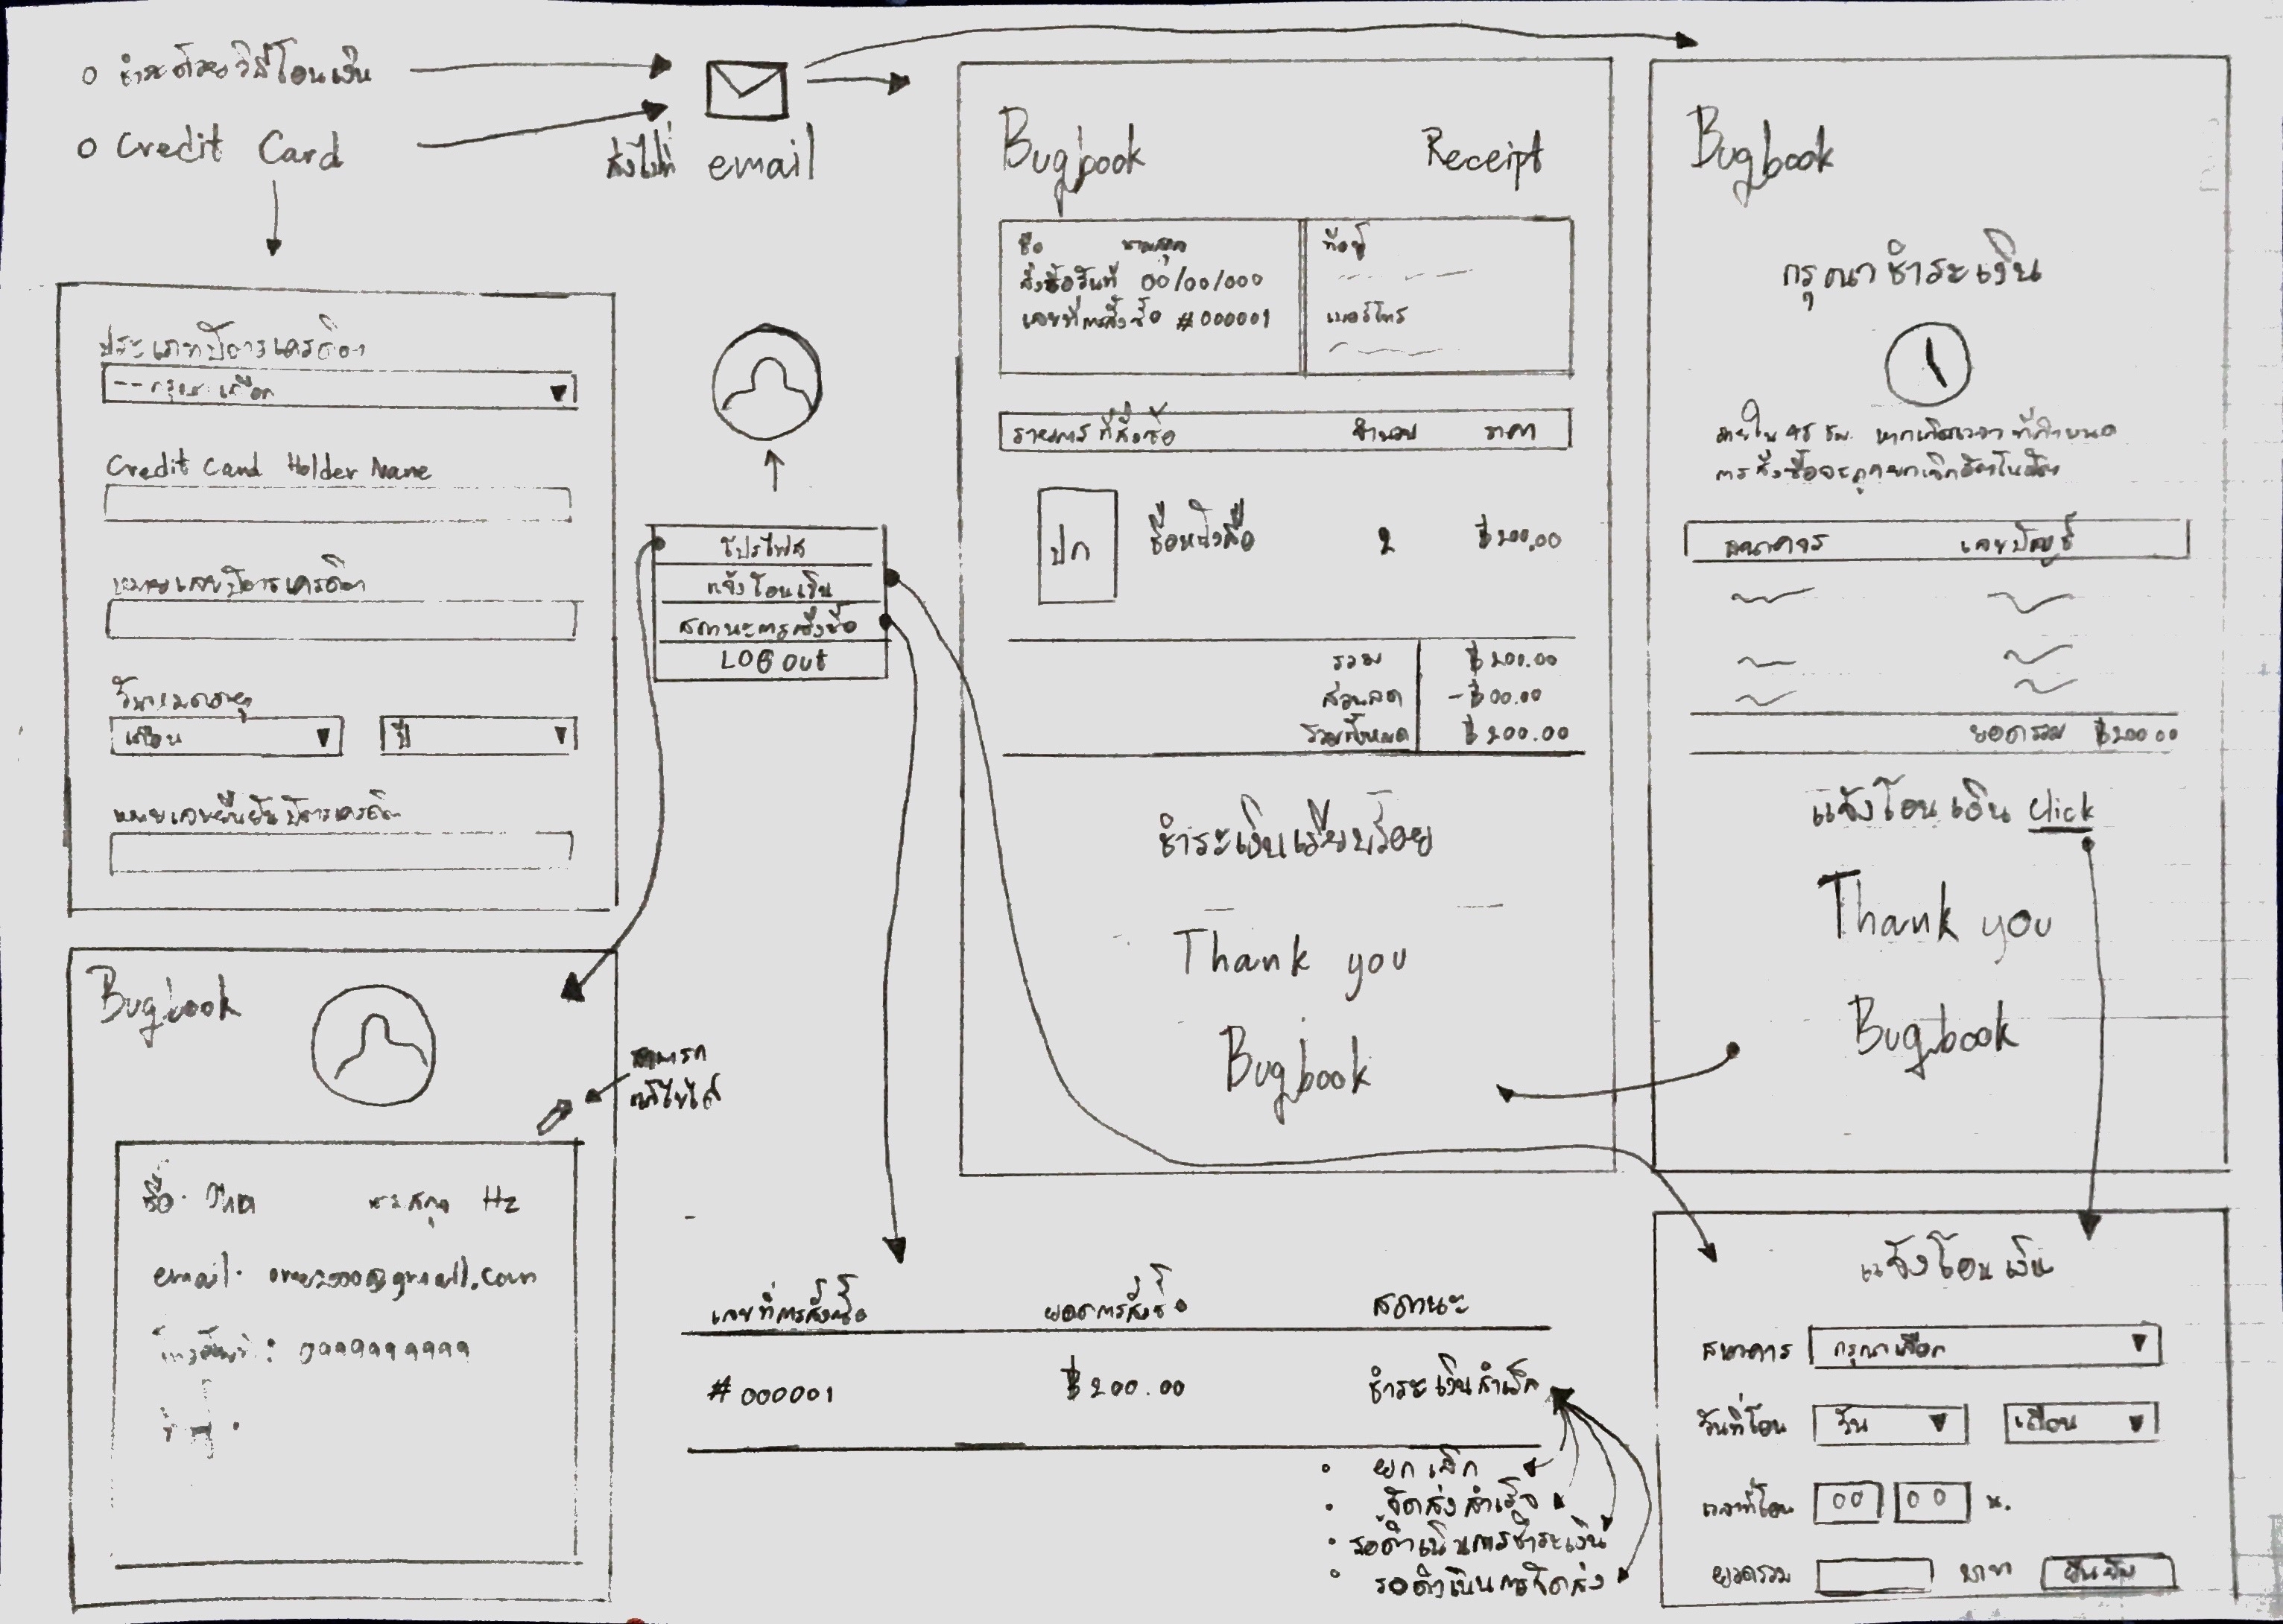 ชำระด้วยวิธีโอนเงิน
Credit Card
ส่งไปที่ email
ประเภทบัตรเครดิต
--กรุณาเลือก
Credit Card Holder Name
หมายเลขบัตรเครดิต
วันหมดอายุ
เดือน ปี
หมายเลขยืนยันบัตรเครดิต
โปรไฟล์
แจ้งโอนเงิน
สถานะการสั่งซื้อ
LOG Out
Bugbook
สามารถ
แก้ไขได้
ชื่อ. นามสกุล Hz
email.
โทรศัพท์ : 0999999999
Bugbook Receipt
ชื่อ นามสกุล
สั่งซื้อวันที่ 00/00/000
เลขที่การสั่งซื้อ #000001
ที่อยู่
เบอร์โทร
รายการที่สั่งซื้อ จำนวน ราคา
ปก ชื่อหนังสือ 2 ฿200.00
รวม ฿200.00
ส่วนลด -฿00.00
รวมทั้งหมด ฿200.00
ชำระเงินเรียบร้อย
Thank you
Bugbook
Bugbook
กรุณาชำระเงิน
ภายใน 48 ชม. หากเกินเวลาที่กำหนด
การสั่งซื้อจะถูกยกเลิกอัตโนมัติ
ธนาคาร เลขบัญชี
ยอดรวม ฿200.00
แจ้งโอนเงิน click
Thank you
Bugbook
เลขที่การสั่งซื้อ ยอดการสั่งซื้อ สถานะ
#000001 ฿200.00 ชำระเงินสำเร็จ
ยกเลิก
จัดส่งสำเร็จ
รอดำเนินการชำระเงิน
รอดำเนินการจัดส่ง
แจ้งโอนเงิน
ธนาคาร กรุณาเลือก
วันที่โอน วัน เดือน
เวลาที่โอน 00 00 น.
ยอดรวม บาท ยืนยัน